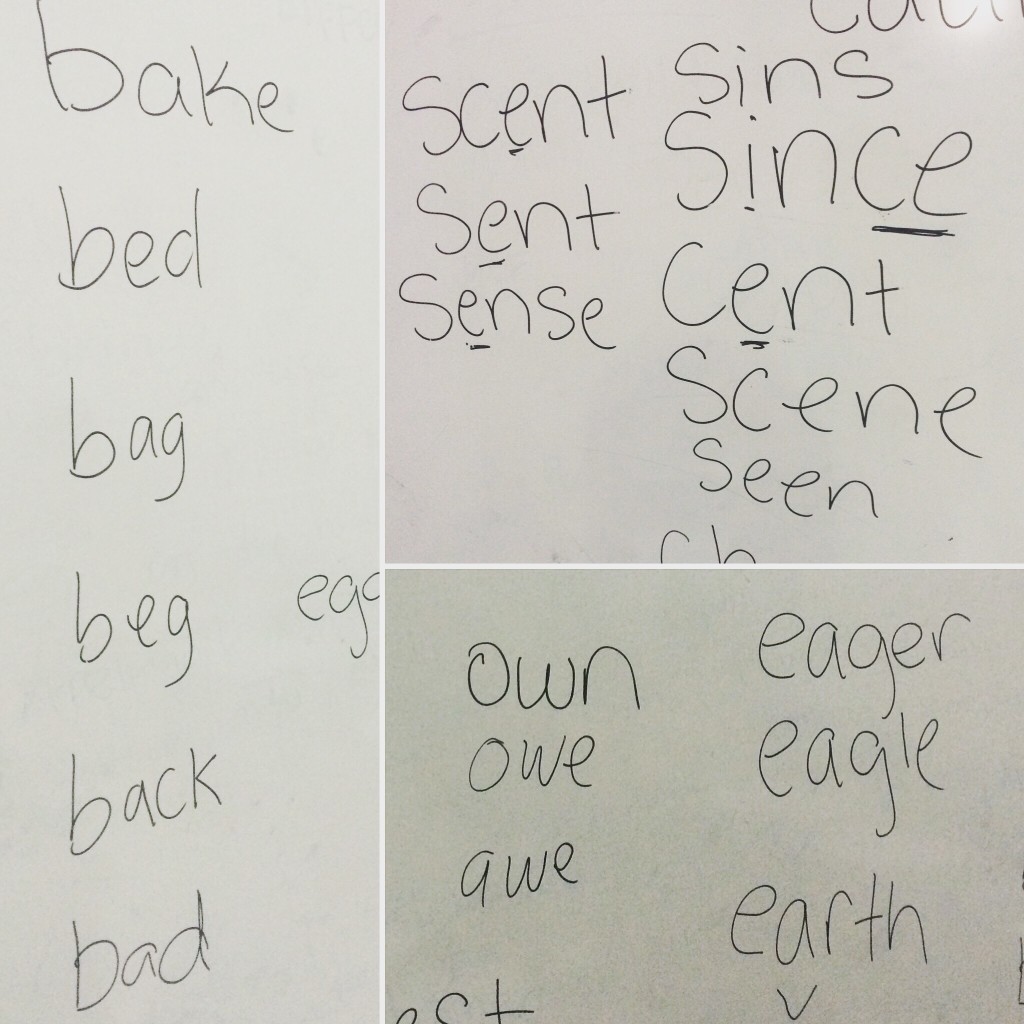 bake
bed
bag
beg
back
bad
scent
sent
sense
sins
since
cent
scene
seen
ch
own
owe
awe
eager
eagle
earth